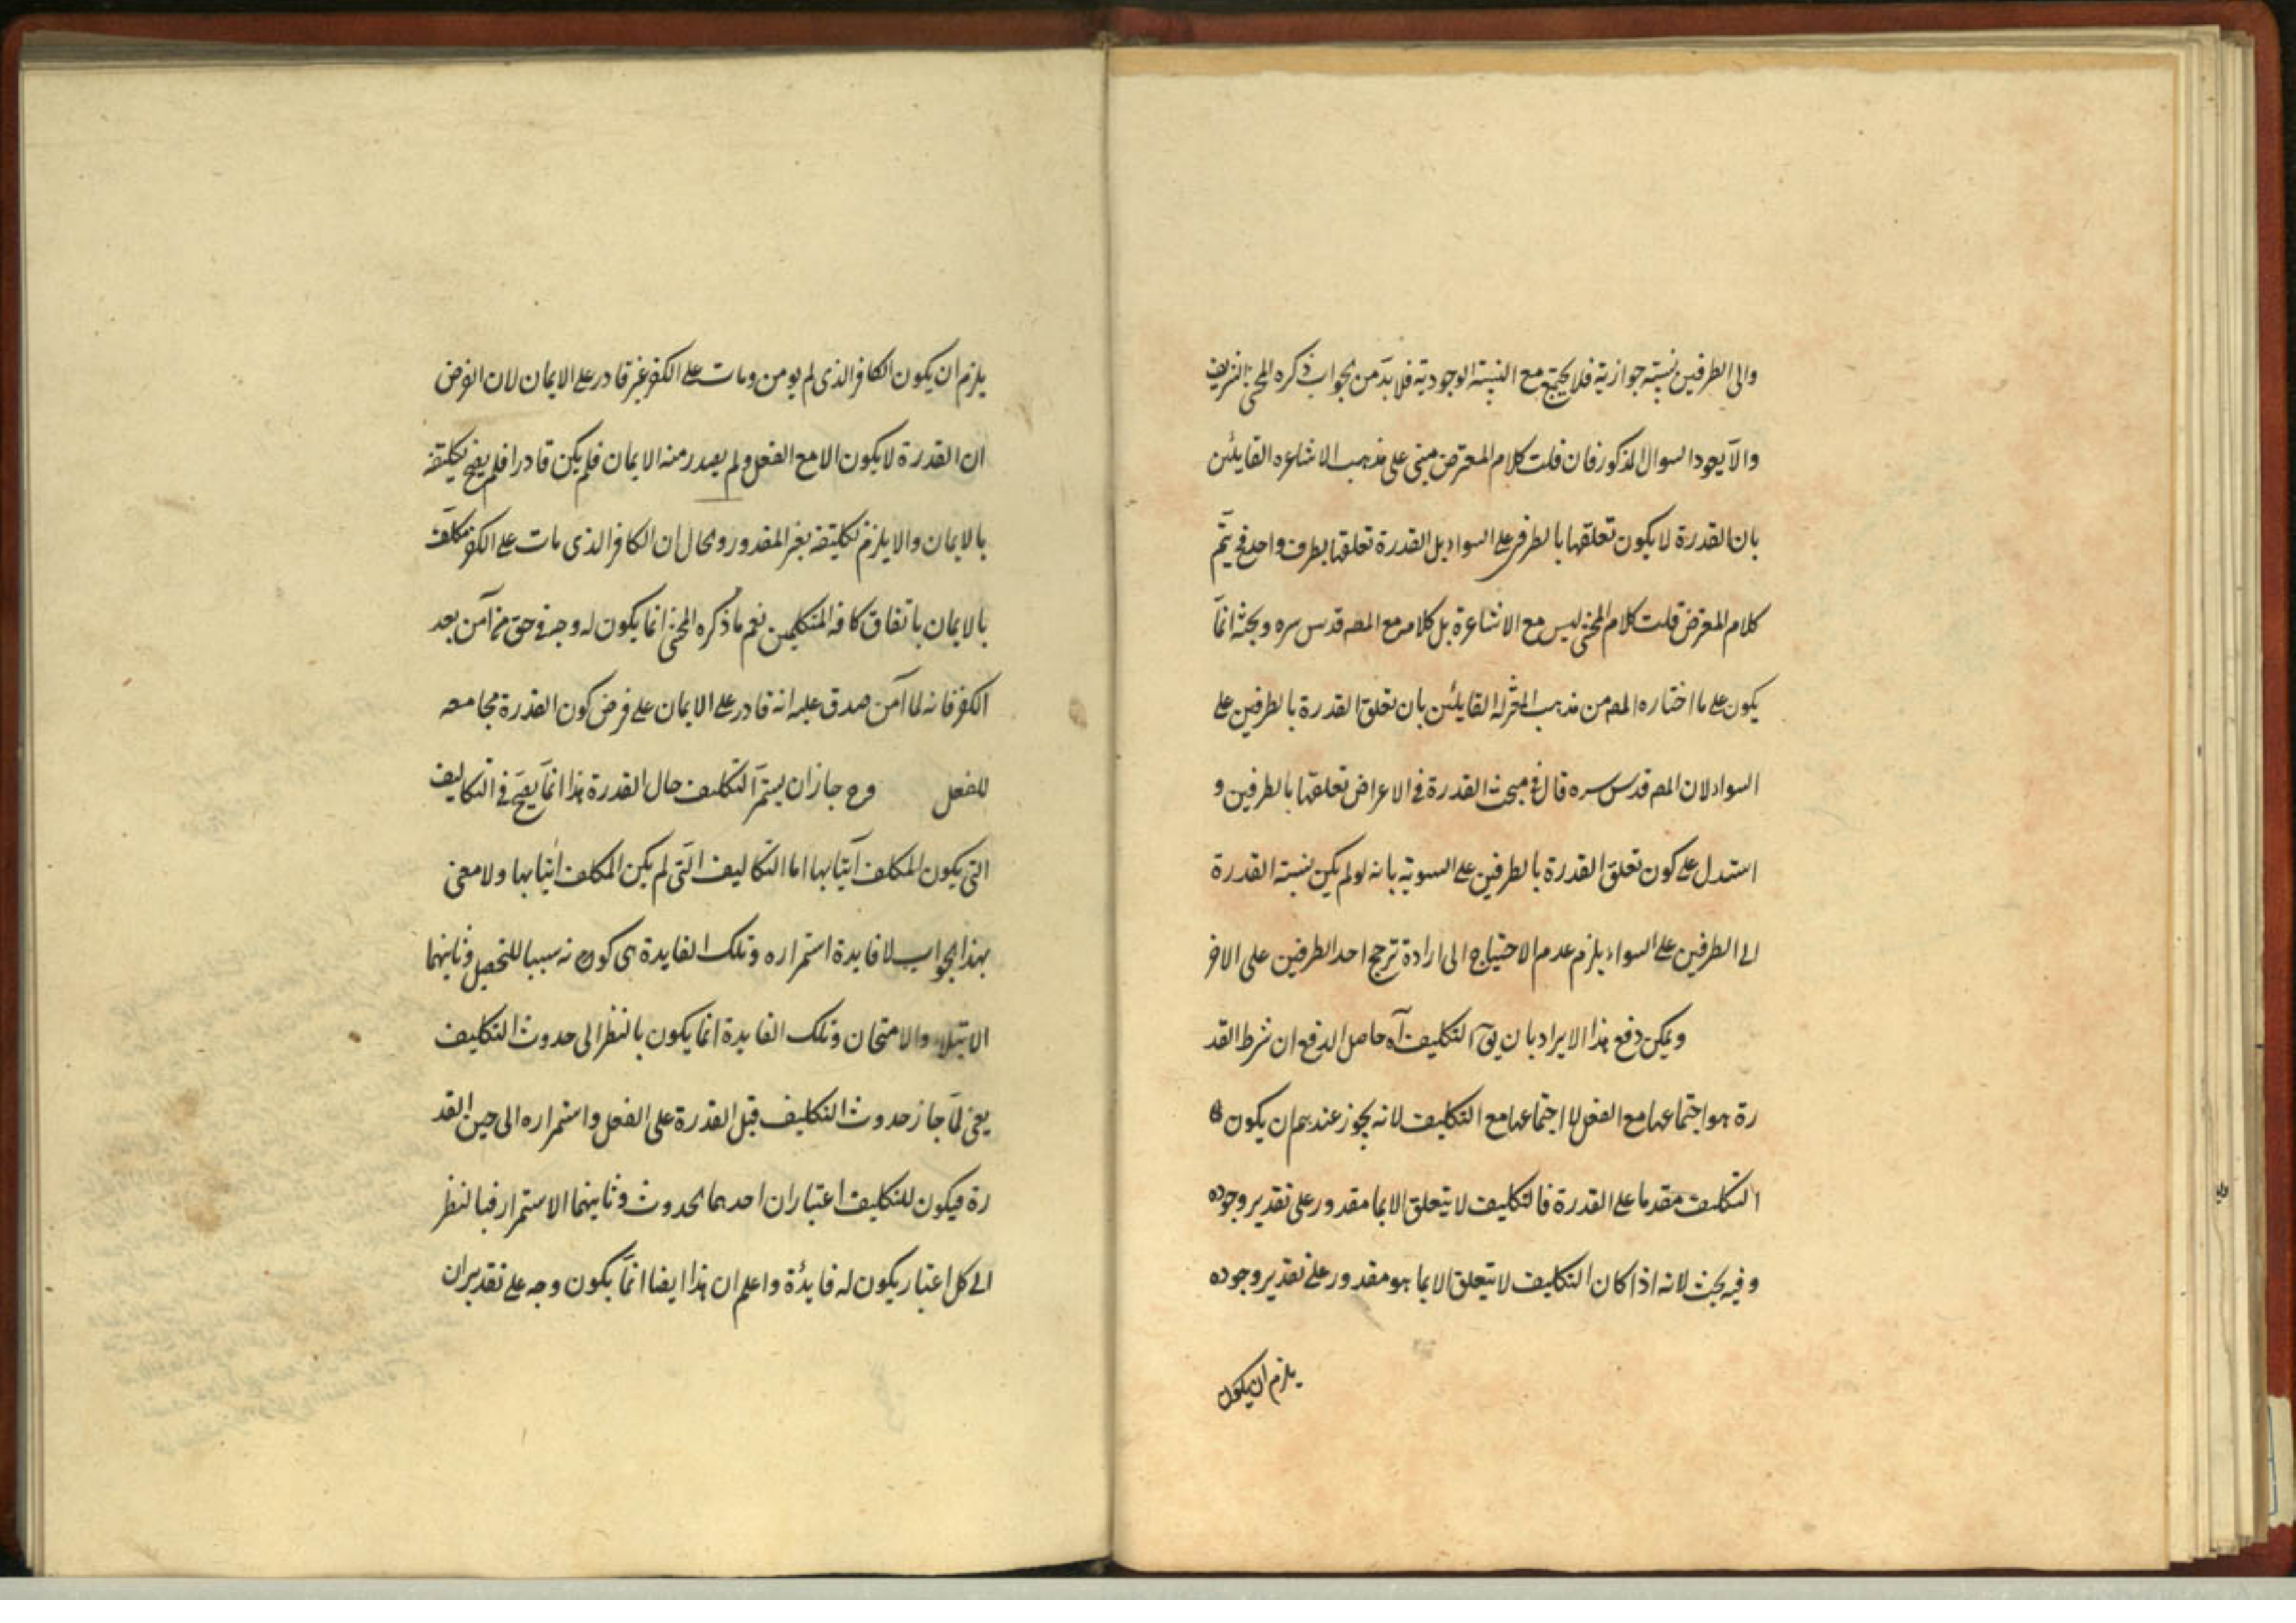 والى الطرفين نسبته جوازية فلا يجتمع مع النسبة الوجودية فلا بدّ من جواب ذكره المحشى الشريف
والا يعود السوال المذكور فان قلت كلام المعترض مبنى على مذهب الاشاعره القايلين
بان القدرة لا يكون تعلقها بالطرفين على السواء بل القدرة تعلقها بطرف واحد فح يتّم
كلام المعترض قلت كلام المحشى ليس مع الاشاعرة بل كلامه مع المصه قدس سره وبحثه انمّا
يكون على ما اختاره المصه من مذهب المعتزلة القايلين بان تعلق القدرة بالطرفين على
السواء لان المصه قدس سره قال فى مبحث القدرة فى الاعراض تعلقها بالطرفين و
استدل على كون تعلق القدرة بالطرفين على السوية بانه لو لم يكن نسبته القدرة
الى الطرفين على السواء يلزم عدم الاحتياج الى ارادة ترجح احد الطرفين على الاخر
ويمكن دفع هذا الايراد بان يقّ التكليف آه حاصل الدفع ان شرط القد
رة هو اجتماعها مع الفعل لا اجتماعها مع التكليف لانه يجوز عندهم ان يكون
التكليف مقدما على القدرة فالتكليف لا يتعلق الا بما مقدور على تقدير وجوده
وفيه بحث لانه اذا كان التكليف لا يتعلق الا بما هو مقدور على تقدير وجوده
يلزم ان يكون
يلزم ان يكون الكافر الذى لم يومن ومات على الكفر غير قادر على الايمان لان الفرض
ان القدرة لا يكون الا مع الفعل ولم يصدر منه الايمان فلم يكن قادرا فلم يصح تكليفه
بالايمان والا يلزم تكليفه بغير المقدور والحال ان الكافر الذى مات على الكفر مكلّف
بالايمان باتفاق كافه المتكلمين نعم ما ذكره المحشى انما يكون له وجه فى حق من آمن بعد
الكفر فانه لما آمن صدق عليه انه قادر على الايمان على فرض كون القدرة مجامعه
للفعل وح جاز ان يستمّر التكليف حال القدرة هذا انمّا يصحّ فى التكاليف
التى يكون المكلف آتيا بها اما التكاليف التّى لم يكن المكلف اتيا بها ولا معنى
بهذا الجواب لا فايدة استمراره وتلك الفايدة اى كونه سببا للتحصل وثانيهما
الابتلاء والامتحان وتلك الفايدة انما يكون بالنظر الى حدوث التكليف
يعنى لمّا جاز حدوث التكليف قبل القدرة على الفعل واستمراره الى حين القد
رة فيكون للتكليف اعتباران احدهما الحدوث وثانيهما الاستمرار فبالنظر
الى كل اعتبار يكون له فايدة واعلم ان هذا ايضا انمّا يكون وجه على تقدير ان